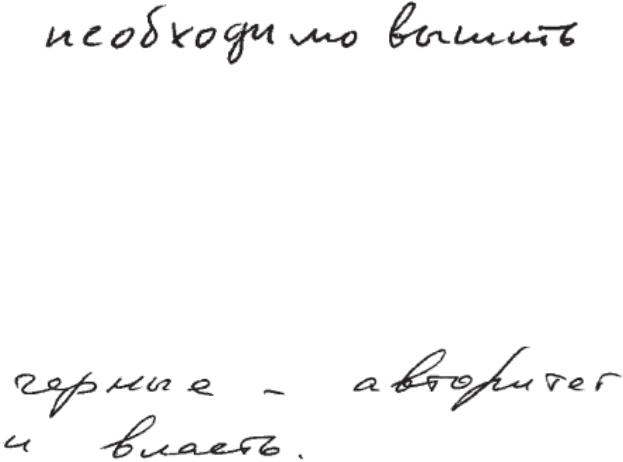 необходимо вышить
черные - авторитет
и власть.